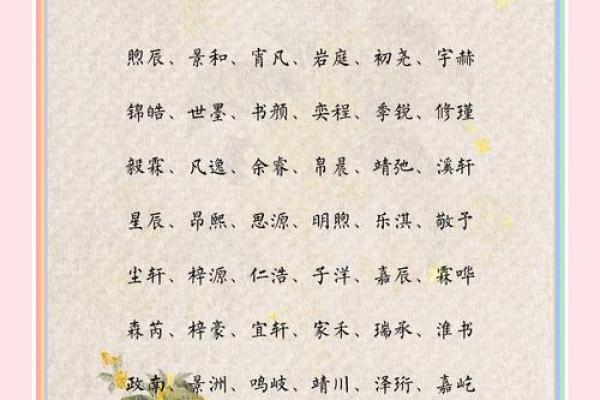 煦辰、景和、宵凡、岩庭、初尧、宇赫
锦皓、世墨、书颜、奕程、季锐、修瑾
毅霖、凡逸、余睿、帛晨、靖弛、溪轩
星辰、昂熙、思源、明煦、乐淇、敬予
尘轩、梓源、仁浩、子洋、嘉辰、霖晔
森芮、梓豪、宜轩、家禾、瑞承、淮书
政南、景洲、鸣岐、靖川、泽珩、嘉屹